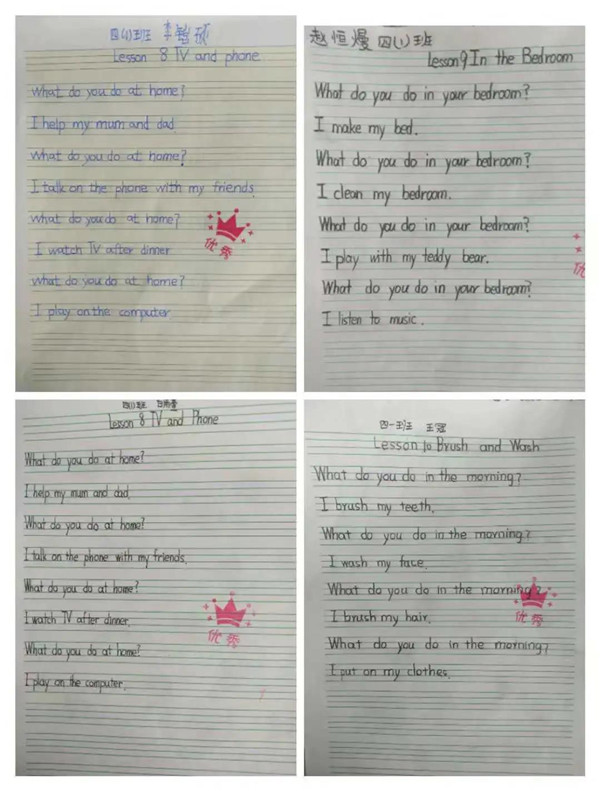 四(1)班班 李
Lesson 8 TV and phone
What do you do at home?
I help my mum and dad.
What do you do at home?
I talk on the phone with my friends.
What do you do at home?
I watch TV after dinner
What do you do at home?
I play on the computer.
优秀
赵恒熳 四(1)班
Lesson 9 In the Bedroom
What do you do in your bedroom?
I make my bed.
What do you do in your bedroom?
I clean my bedroom.
What do you do in your bedroom?
I play with my teddy bear.
What do you do in your bedroom?
I listen to music.
优
四(1)班
Lesson 8 TV and Phone
What do you do at home?
I help my mum and dad.
What do you do at home?
I talk on the phone with my friends.
What do you do at home?
I watch TV after dinner.
What do you do at home?
I play on the computer.
优秀
四一班 王冠
Lesson 10 Brush and Wash
What do you do in the morning?
I brush my teeth.
What do you do in the morning?
I wash my face.
What do you do in the morning?
I brush my hair.
What do you do in the morning?
I put on my clothes.
优秀